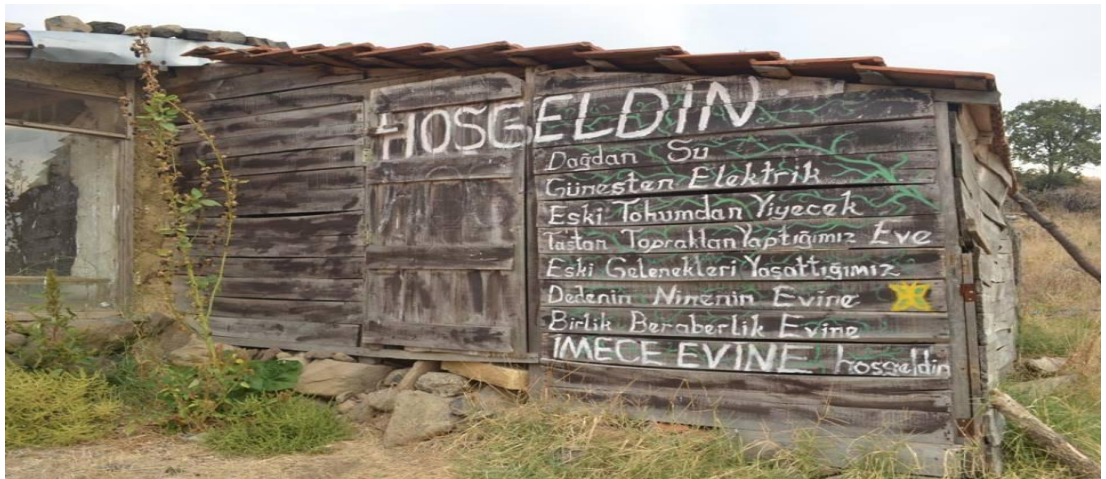 HOŞGELDİN
Dağdan Su
Güneşten Elektrik
Eski Tohumdan Yiyecek
Taştan Topraktan Yaptığımız Eve
Eski Gelenekleri Yaşattığımız
Dedenin Ninenin Evine
Birlik Beraberlik Evine
İMECE EVINE hoşgeldin